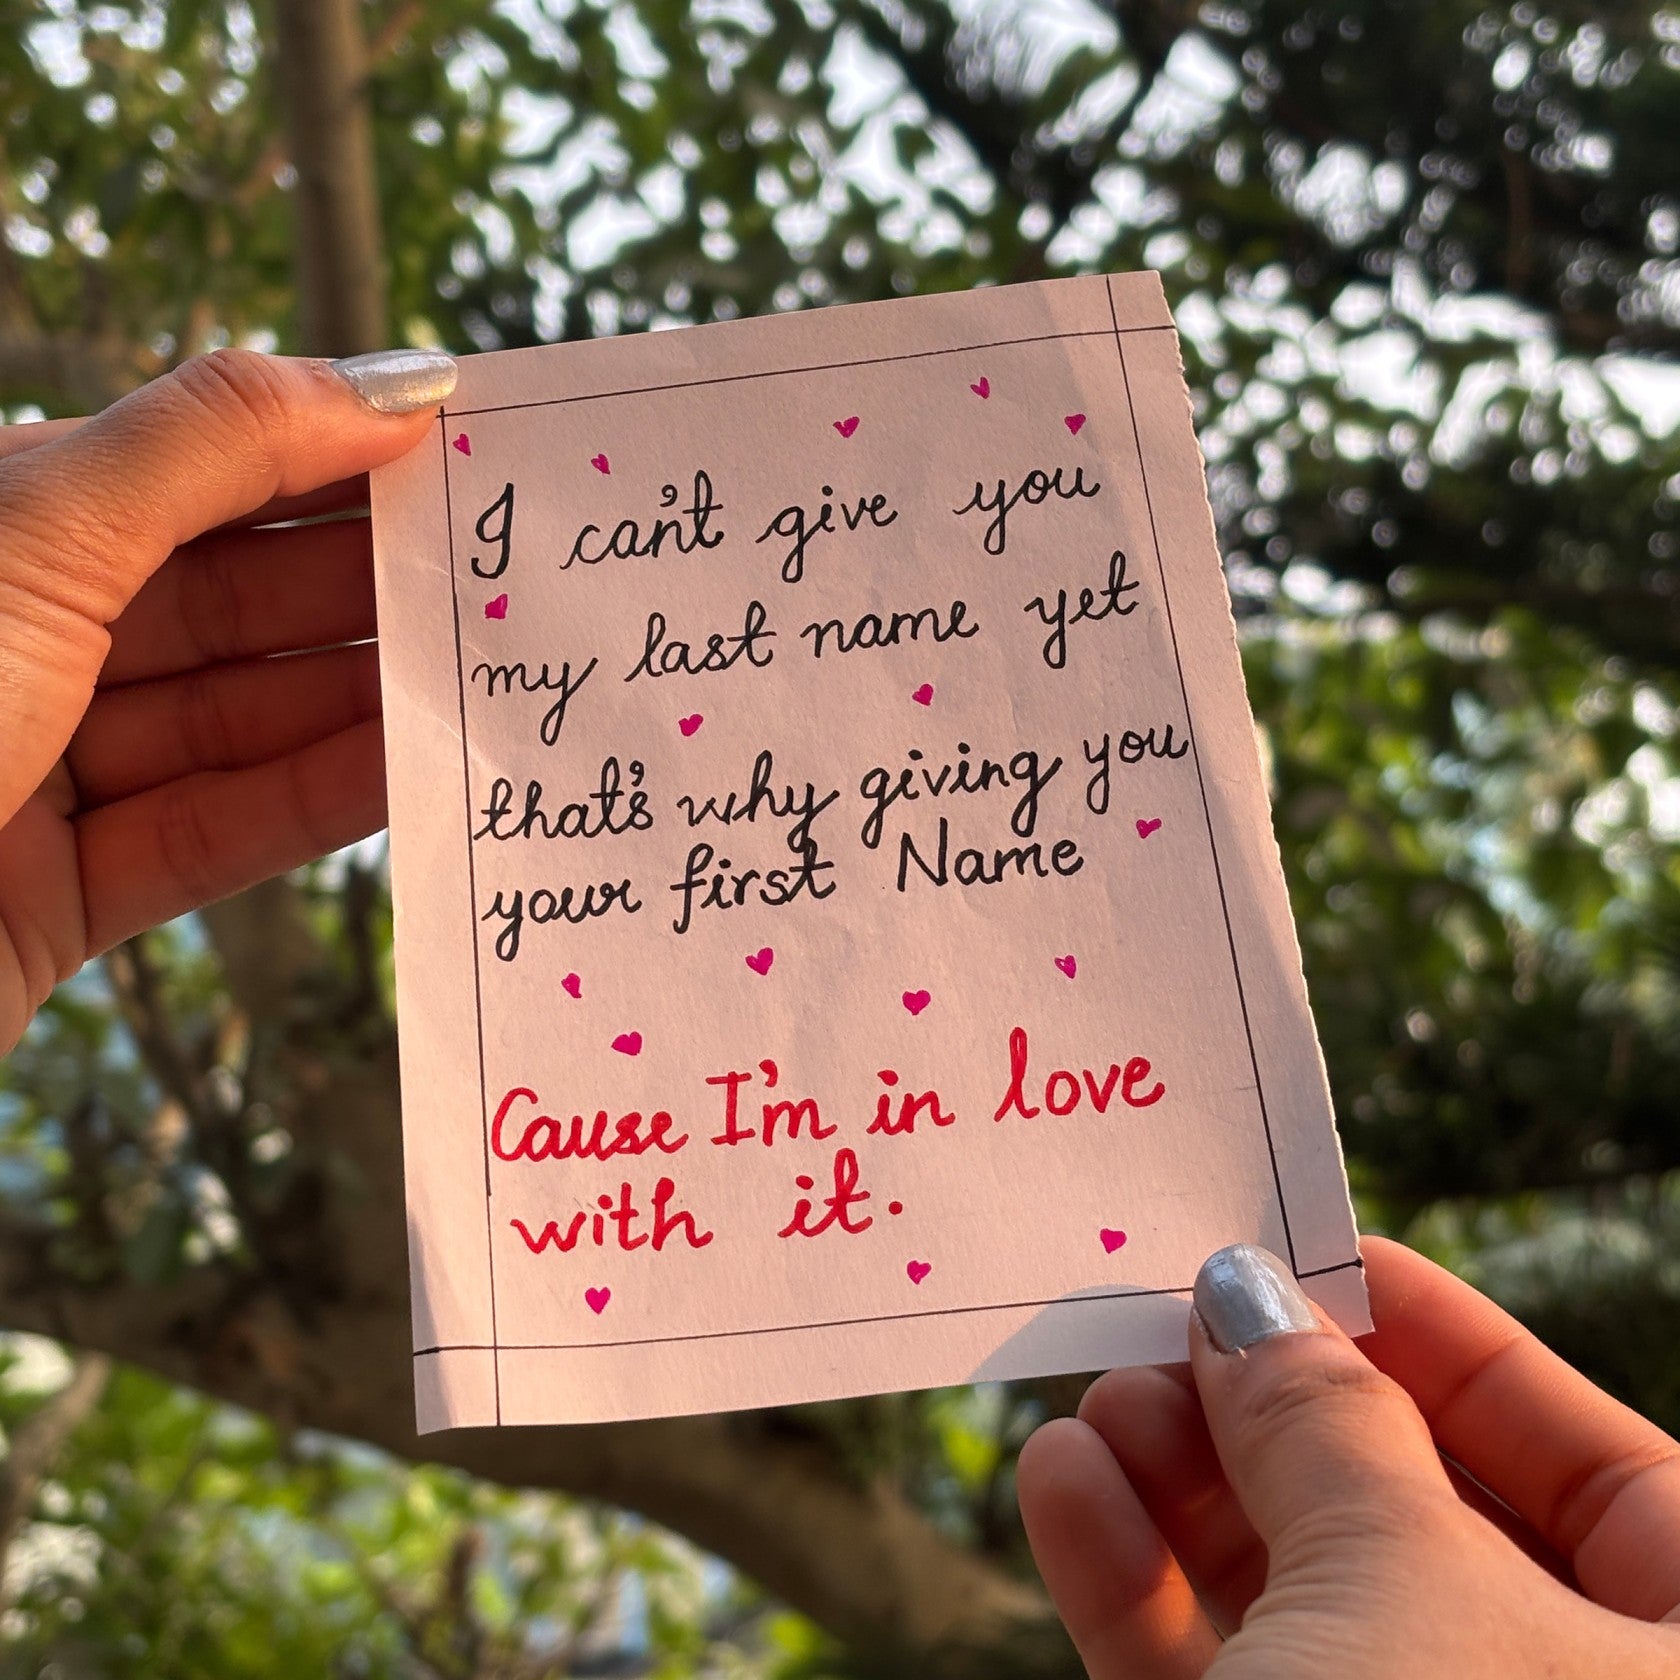 I can't give you
my last name yet
that's why giving you
your first Name
Cause I'm in love
with it.